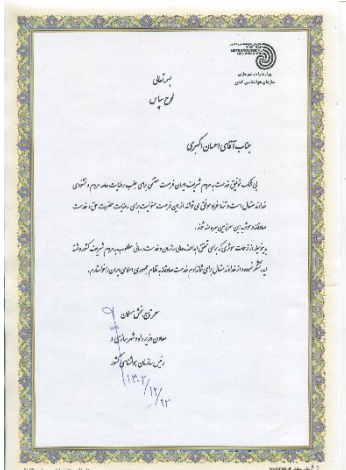 وزارت راه و شهرسازی
سازمان هواشناسی کشور
بسمه تعالی
لوح سپاس
جناب آقای احسان اکبری
بی شک توفیق خدمت به مردم شریف ایران فرصت مغتنمی برای جلب رضایت عامه مردم و خشنودی
خداوند متعال است و تنها افراد موفق می توانند از این فرصت مسئولیت برای رضایت حضرت حق و خدمت
صادقانه و موثر به این سرزمین بهره مند شوند.
بدینوسیله از زحمات موثری که برای تحقق اهداف عالی سازمان و خدمت رسانی مطلوب به مردم شریف کشور داشته
اید، تشکر نموده و از خداوند متعال برای شما تداوم خدمت صادقانه به نظام جمهوری اسلامی ایران را خواستارم.
سحر تاج بخش مسلمان
معاون وزیر راه و شهرسازی و
رئیس سازمان هواشناسی کشور
۱۴۰۲/۱۲/۱۲